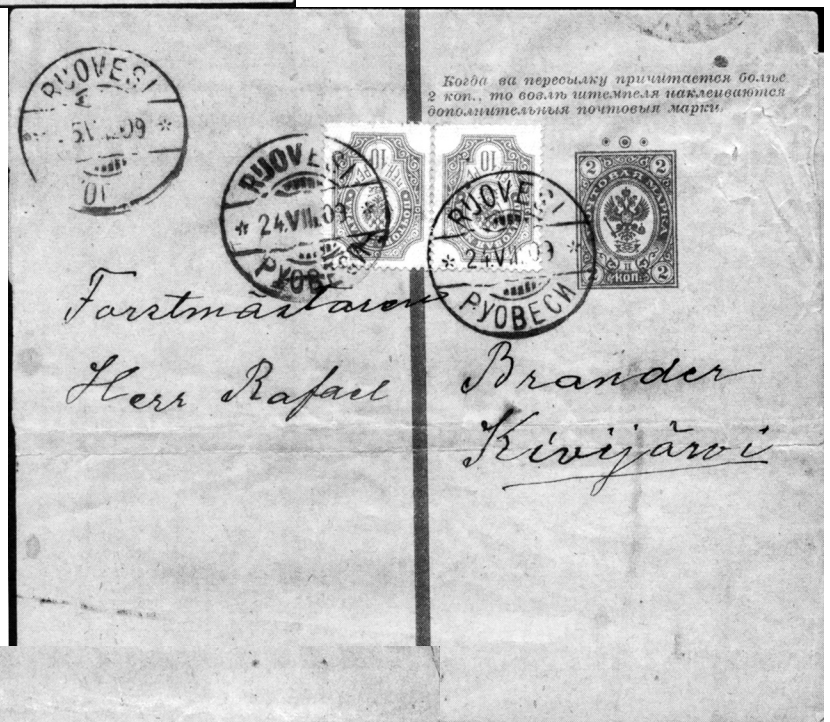 RUOVESI
Когда за пересылку причитается болѣе
2 коп., то возлѣ штемпеля наклеиваются
дополнительныя почтовыя марки.
RUOVESI
24.VII.09
РУОВЕСИ
10
10
RUOVESI
24.VII.09
РУОВЕСИ
2 2
МАРКА
II
КОП.
2
Forstmästaren
Herr Rafael Brander
Kivijärvi